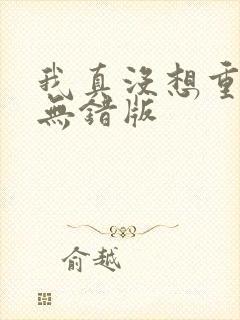 我真没想重
無錯版
俞越